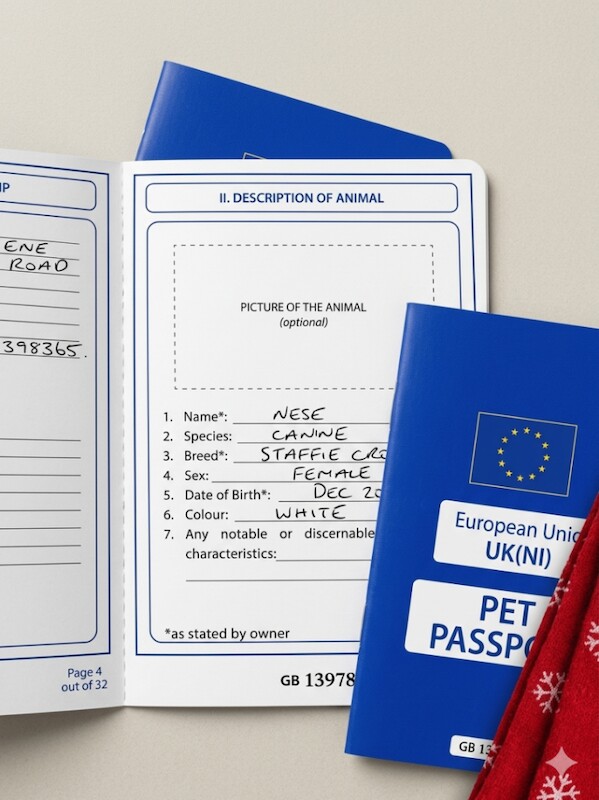 IP
ENE
ROAD
398365.
Page 4
out of 32
II. DESCRIPTION OF ANIMAL
PICTURE OF THE ANIMAL
(optional)
1. Name*: NESE
2. Species: CANINE
3. Breed*: STAFFIE CRO
4. Sex: FEMALE
5. Date of Birth*: DEC 20
6. Colour: WHITE
7. Any notable or discernable
characteristics:
*as stated by owner
GB 13978
European Unio
UK(NI)
PET
PASSPO
GB 13